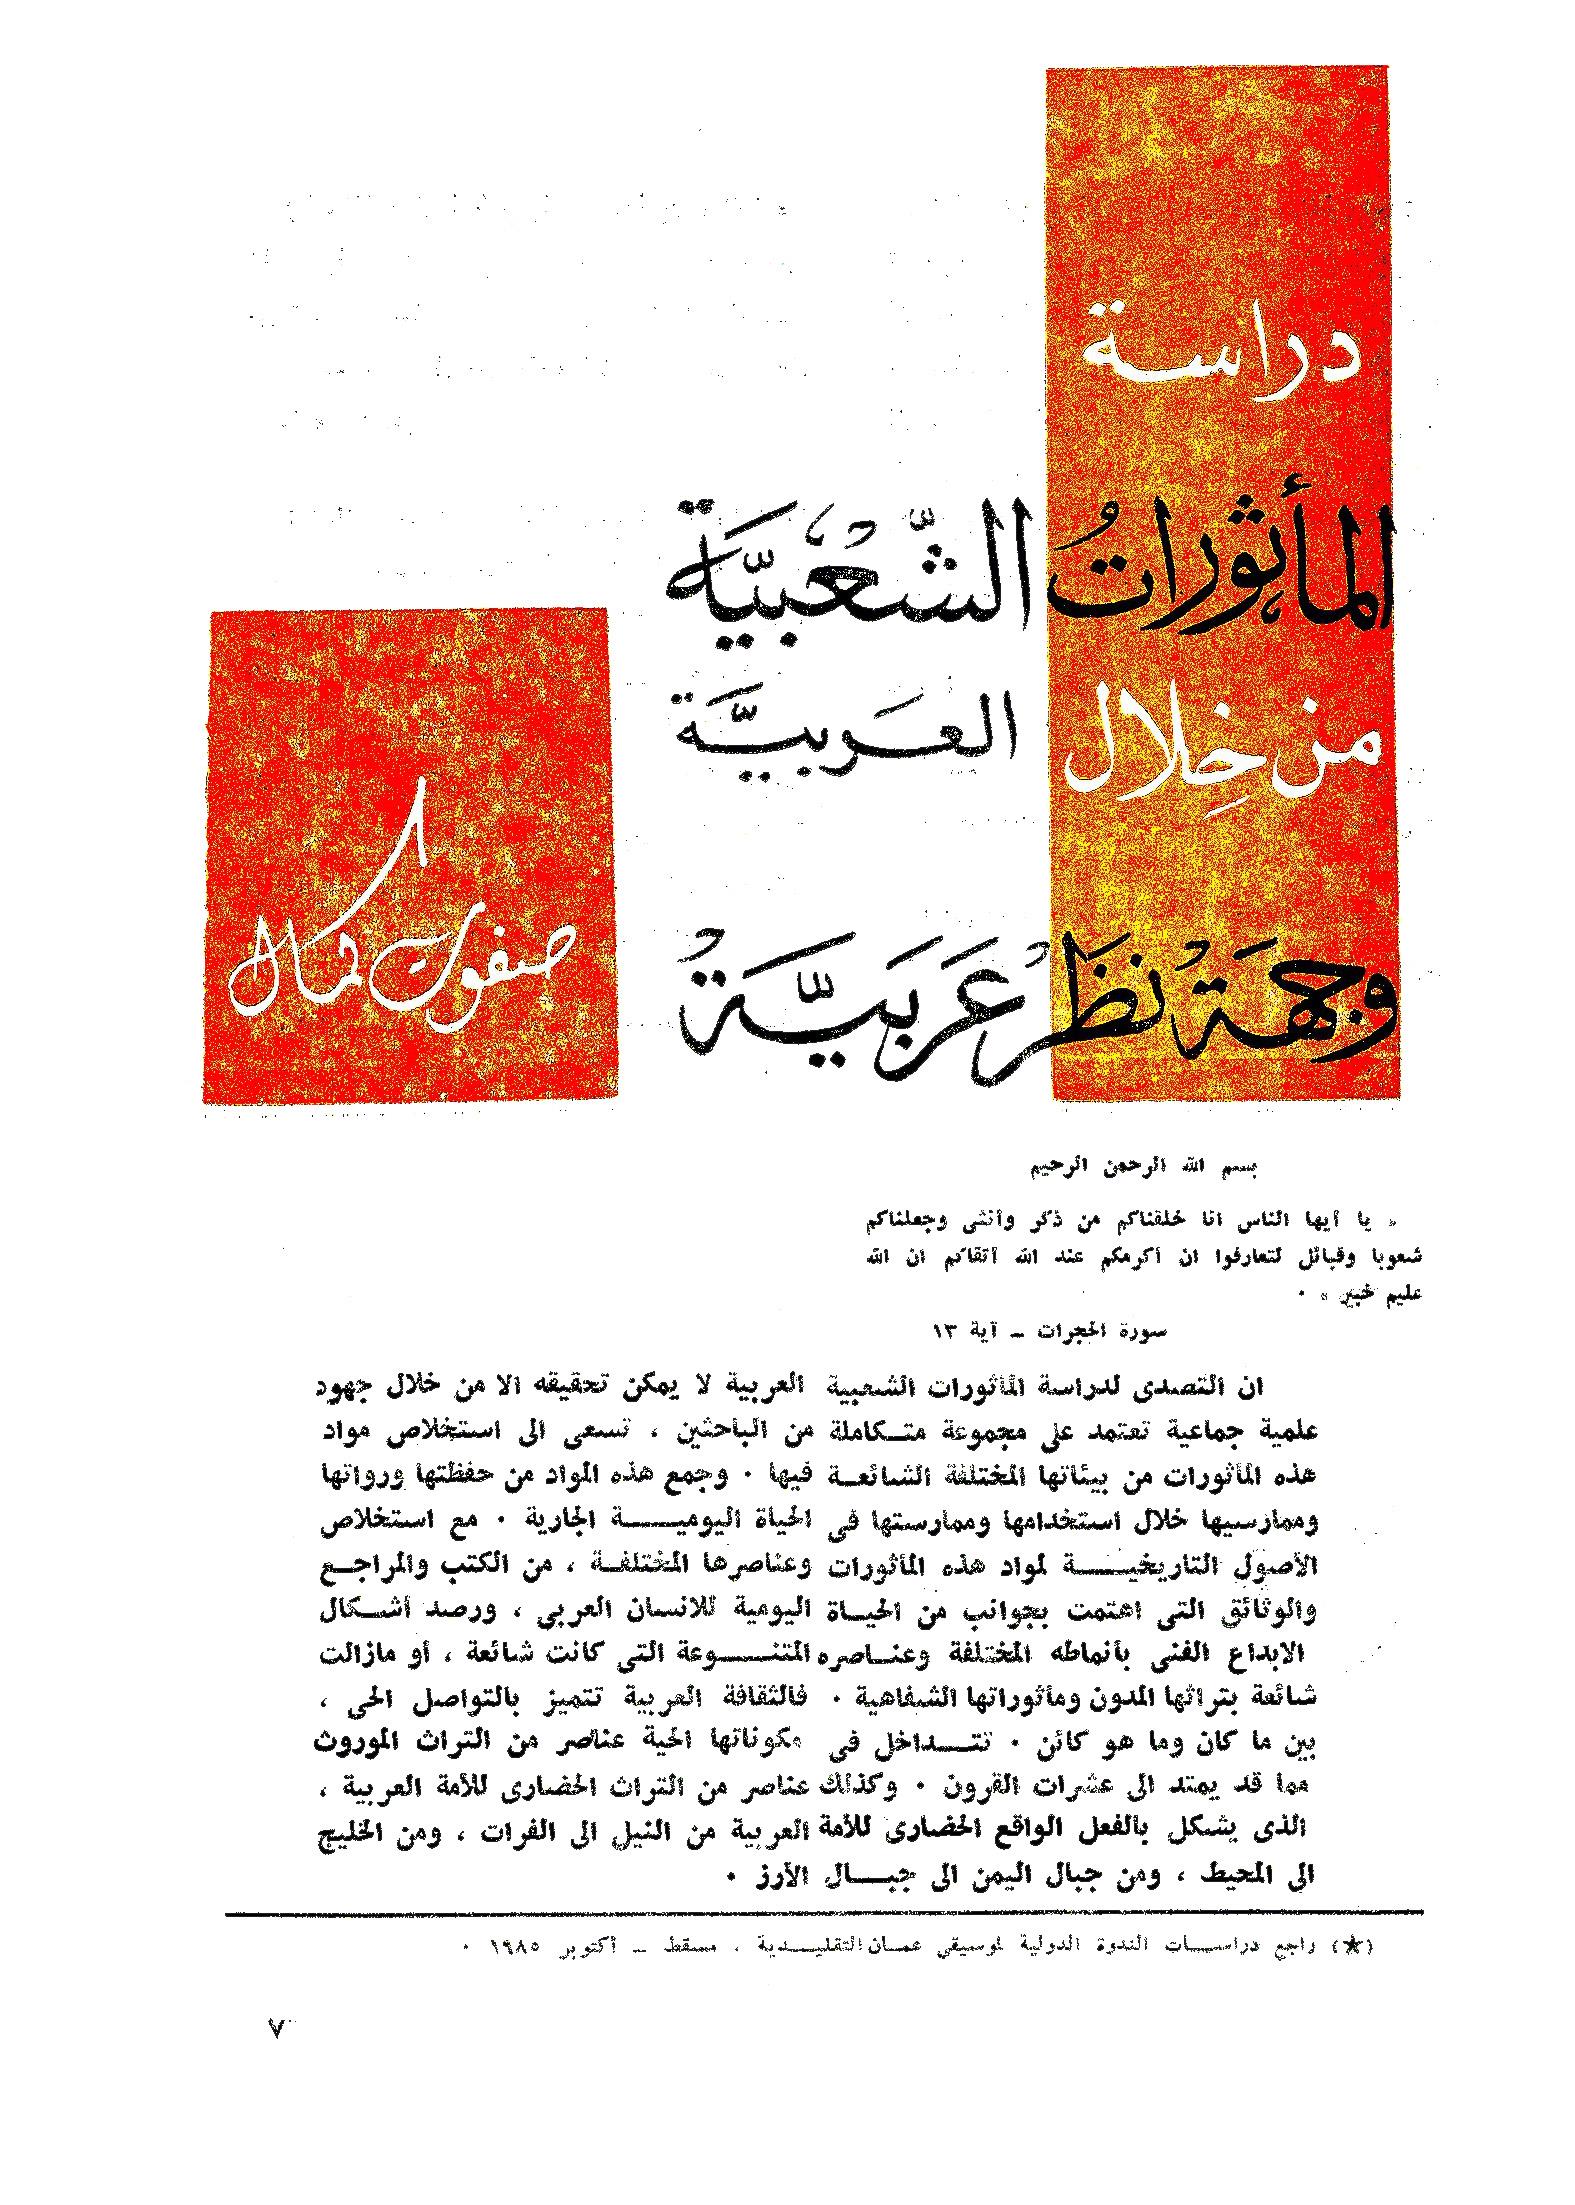 دراسة
المأثوراتُ الشّعْبيَّة
العَربيَّة
من خِلال
وجهَةُ نظَرُ عَرَبيَّةُ
صفوت كمال
بسم الله الرحمن الرحيم
« يا أيها الناس انا خلقناكم من ذكر وأنثى وجعلناكم
شعوبا وقبائل لتعارفوا ان أكرمكم عند الله أتقاكم ان الله
عليم خبير » ٠
سورة الحجرات ــ آية ١٣
ان التصدى لدراسة المأثورات الشعبية العربية لا يمكن تحقيقه الا من خلال جهود
علمية جماعية تعتمد على مجموعة متكاملة من الباحثين ، تسعى الى استخلاص مواد
هذه المأثورات من بيئاتها المختلفة الشائعة فيها ٠ وجمع هذه المواد من حفظتها ورواتها
وممارسيها خلال استخدامها وممارستها فى الحياة اليومية الجارية ٠ مع استخلاص
الأصول التاريخية لمواد هذه المأثورات وعناصرها المختلفة ، من الكتب والمراجع
والوثائق التى اهتمت بجوانب من الحياة اليومية للانسان العربى ، ورصد أشكال
الابداع الفنى بأنماطه المختلفة وعناصره المتنوعة التى كانت شائعة ، أو مازالت
شائعة بتراثها المدون ومأثوراتها الشفاهية ٠ فالثقافة العربية تتميز بالتواصل الحى ،
بين ما كان وما هو كائن ٠ تتداخل فى مكوناتها الحية عناصر من التراث الموروث
مما قد يمتد الى عشرات القرون ٠ وكذلك عناصر من التراث الحضارى للأمة العربية ،
الذى يشكل بالفعل الواقع الحضارى للأمة العربية من النيل الى الفرات ، ومن الخليج
الى المحيط ، ومن جبال اليمن الى جبال الأرز ٠
(★) راجع دراسات الندوة الدولية لموسيقى عمان التقليدية ، مسقط ــ أكتوبر ١٩٨٥ ٠
٧